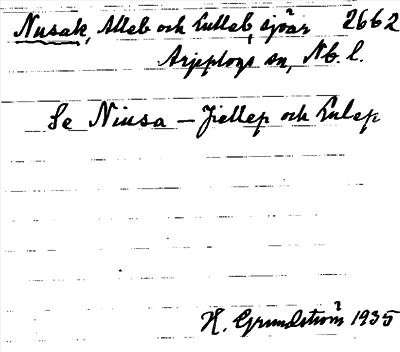 Nusak, Alleb och Lulleb, sjöar 2662
Arjeplogs sn, Nb. l.
Se Niusa – Jiellep och Lulep
H. Grundström 1935